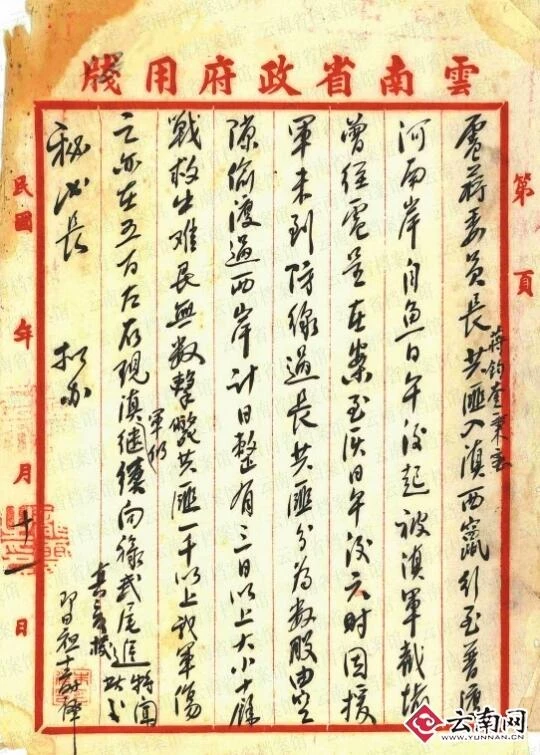 雲南省政府用牋
第 頁
電蔣委員長共匪入滇西竄行至普渡
河南岸自魚日午後起被滇軍截堵
曾經電呈在案至灰日午後六时因援
軍未到防線過長共匪分為數股由空
隙偷渡過西岸計日整有三日以上大小十餘
戰救出难民無數擊斃共匪一千以上我軍傷
亡亦在五百左右現滇軍仍継續向祿武尾追特聞
秘书长 拟办
民國 年 月十一日
云南网
WWW.YUNNAN.CN